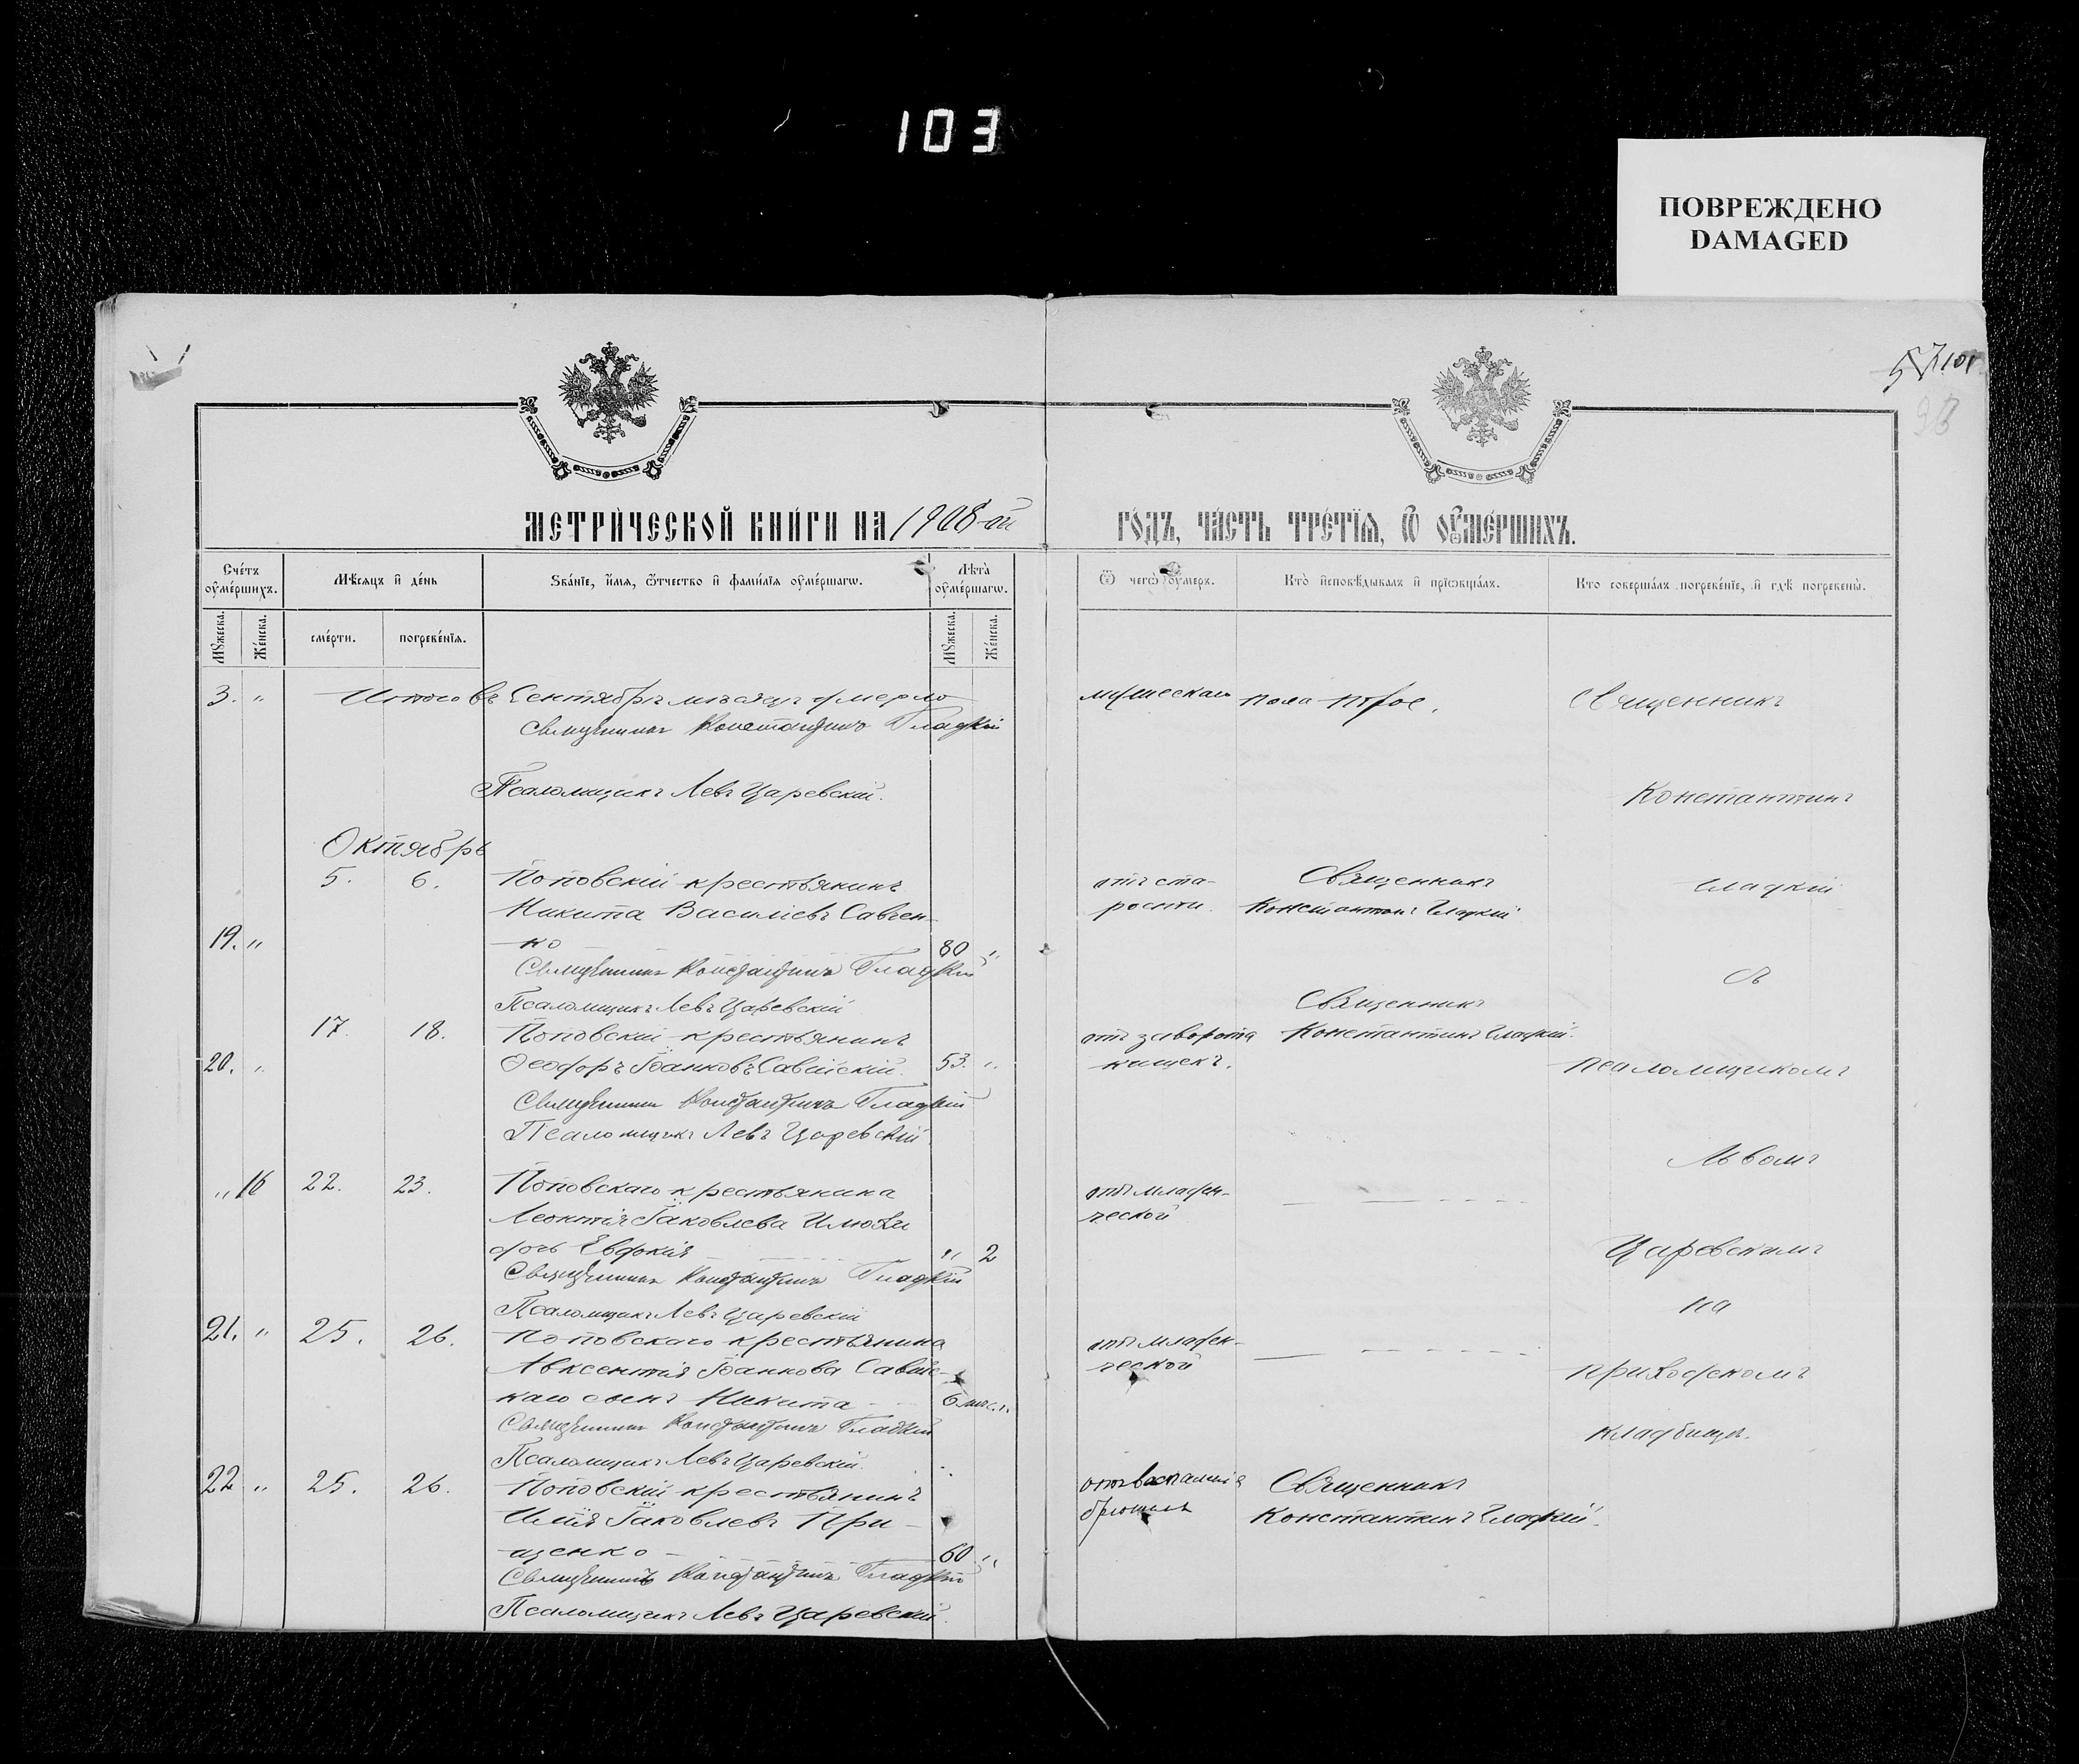 103
ПОВРЕЖДЕНО
DAMAGED
57
101
МЕТРИЧЕСКОЙ КНИГИ НА 1908-ой
ГОДЪ, ЧАСТЬ ТРЕТІЯ, Ѿ ОУМЕРШИХЪ.
Счетъ оумершихъ.
Мѣсяцъ и день
Званіе, имя, ѿтчество и фамилія оумершагѡ.
Лѣта оумершагѡ.
Ѿ чегѡ оумеръ.
Кто исповѣдывалъ и пріѡбщалъ.
Кто совершалъ погребеніе, и гдѣ погребены.
Мꙋжеска.
Женска.
смерти.
погребенія.
Мꙋжеска.
Женска.
3. „ Итого въ Сентябрѣ мѣсяцѣ умерло мужескаго пола трое.
Священникъ Константинъ Гладкій
Псаломщикъ Левъ Царевскій.
Октябрь
5. 6. Поповскій крестьянинъ
Никита Васильевъ Савчен-
19. „ ко 80 „
отъ ста-
рости.
Священникъ
Константинъ Гладкій
Священникъ Константинъ Гладкій
Псаломщикъ Левъ Царевскій
17. 18. Поповскій крестьянинъ
20. „ Ѳеодоръ Іоанновъ 53. „
отъ заворота
кишекъ.
Священникъ
Константинъ Гладкій.
Священникъ Константинъ Гладкій
Псаломщикъ Левъ Царевскій
„ 16 22. 23. Поповскаго крестьянина
Леонтія Іаковлева
дочь Евдокія „ 2
отъ младен-
ческой
Священникъ Константинъ Гладкій
Псаломщикъ Левъ Царевскій
21. „ 25. 26. Поповскаго крестьянина
Авксентія Іоаннова
каго сынъ Никита 6 мѣс. „
отъ младен-
ческой
Священникъ Константинъ Гладкій
Псаломщикъ Левъ Царевскій.
22 „ 25. 26. Поповскій крестьянинъ
Илія Іаковлевъ При-
щенко 60 „
отъ воспаленія
брюшины
Священникъ
Константинъ Гладкій.
Священникъ Константинъ Гладкій
Псаломщикъ Левъ Царевскій.
Священникъ
Константинъ
Гладкій
съ
псаломщикомъ
Львомъ
Царевскимъ
на
приходскомъ
кладбищѣ.